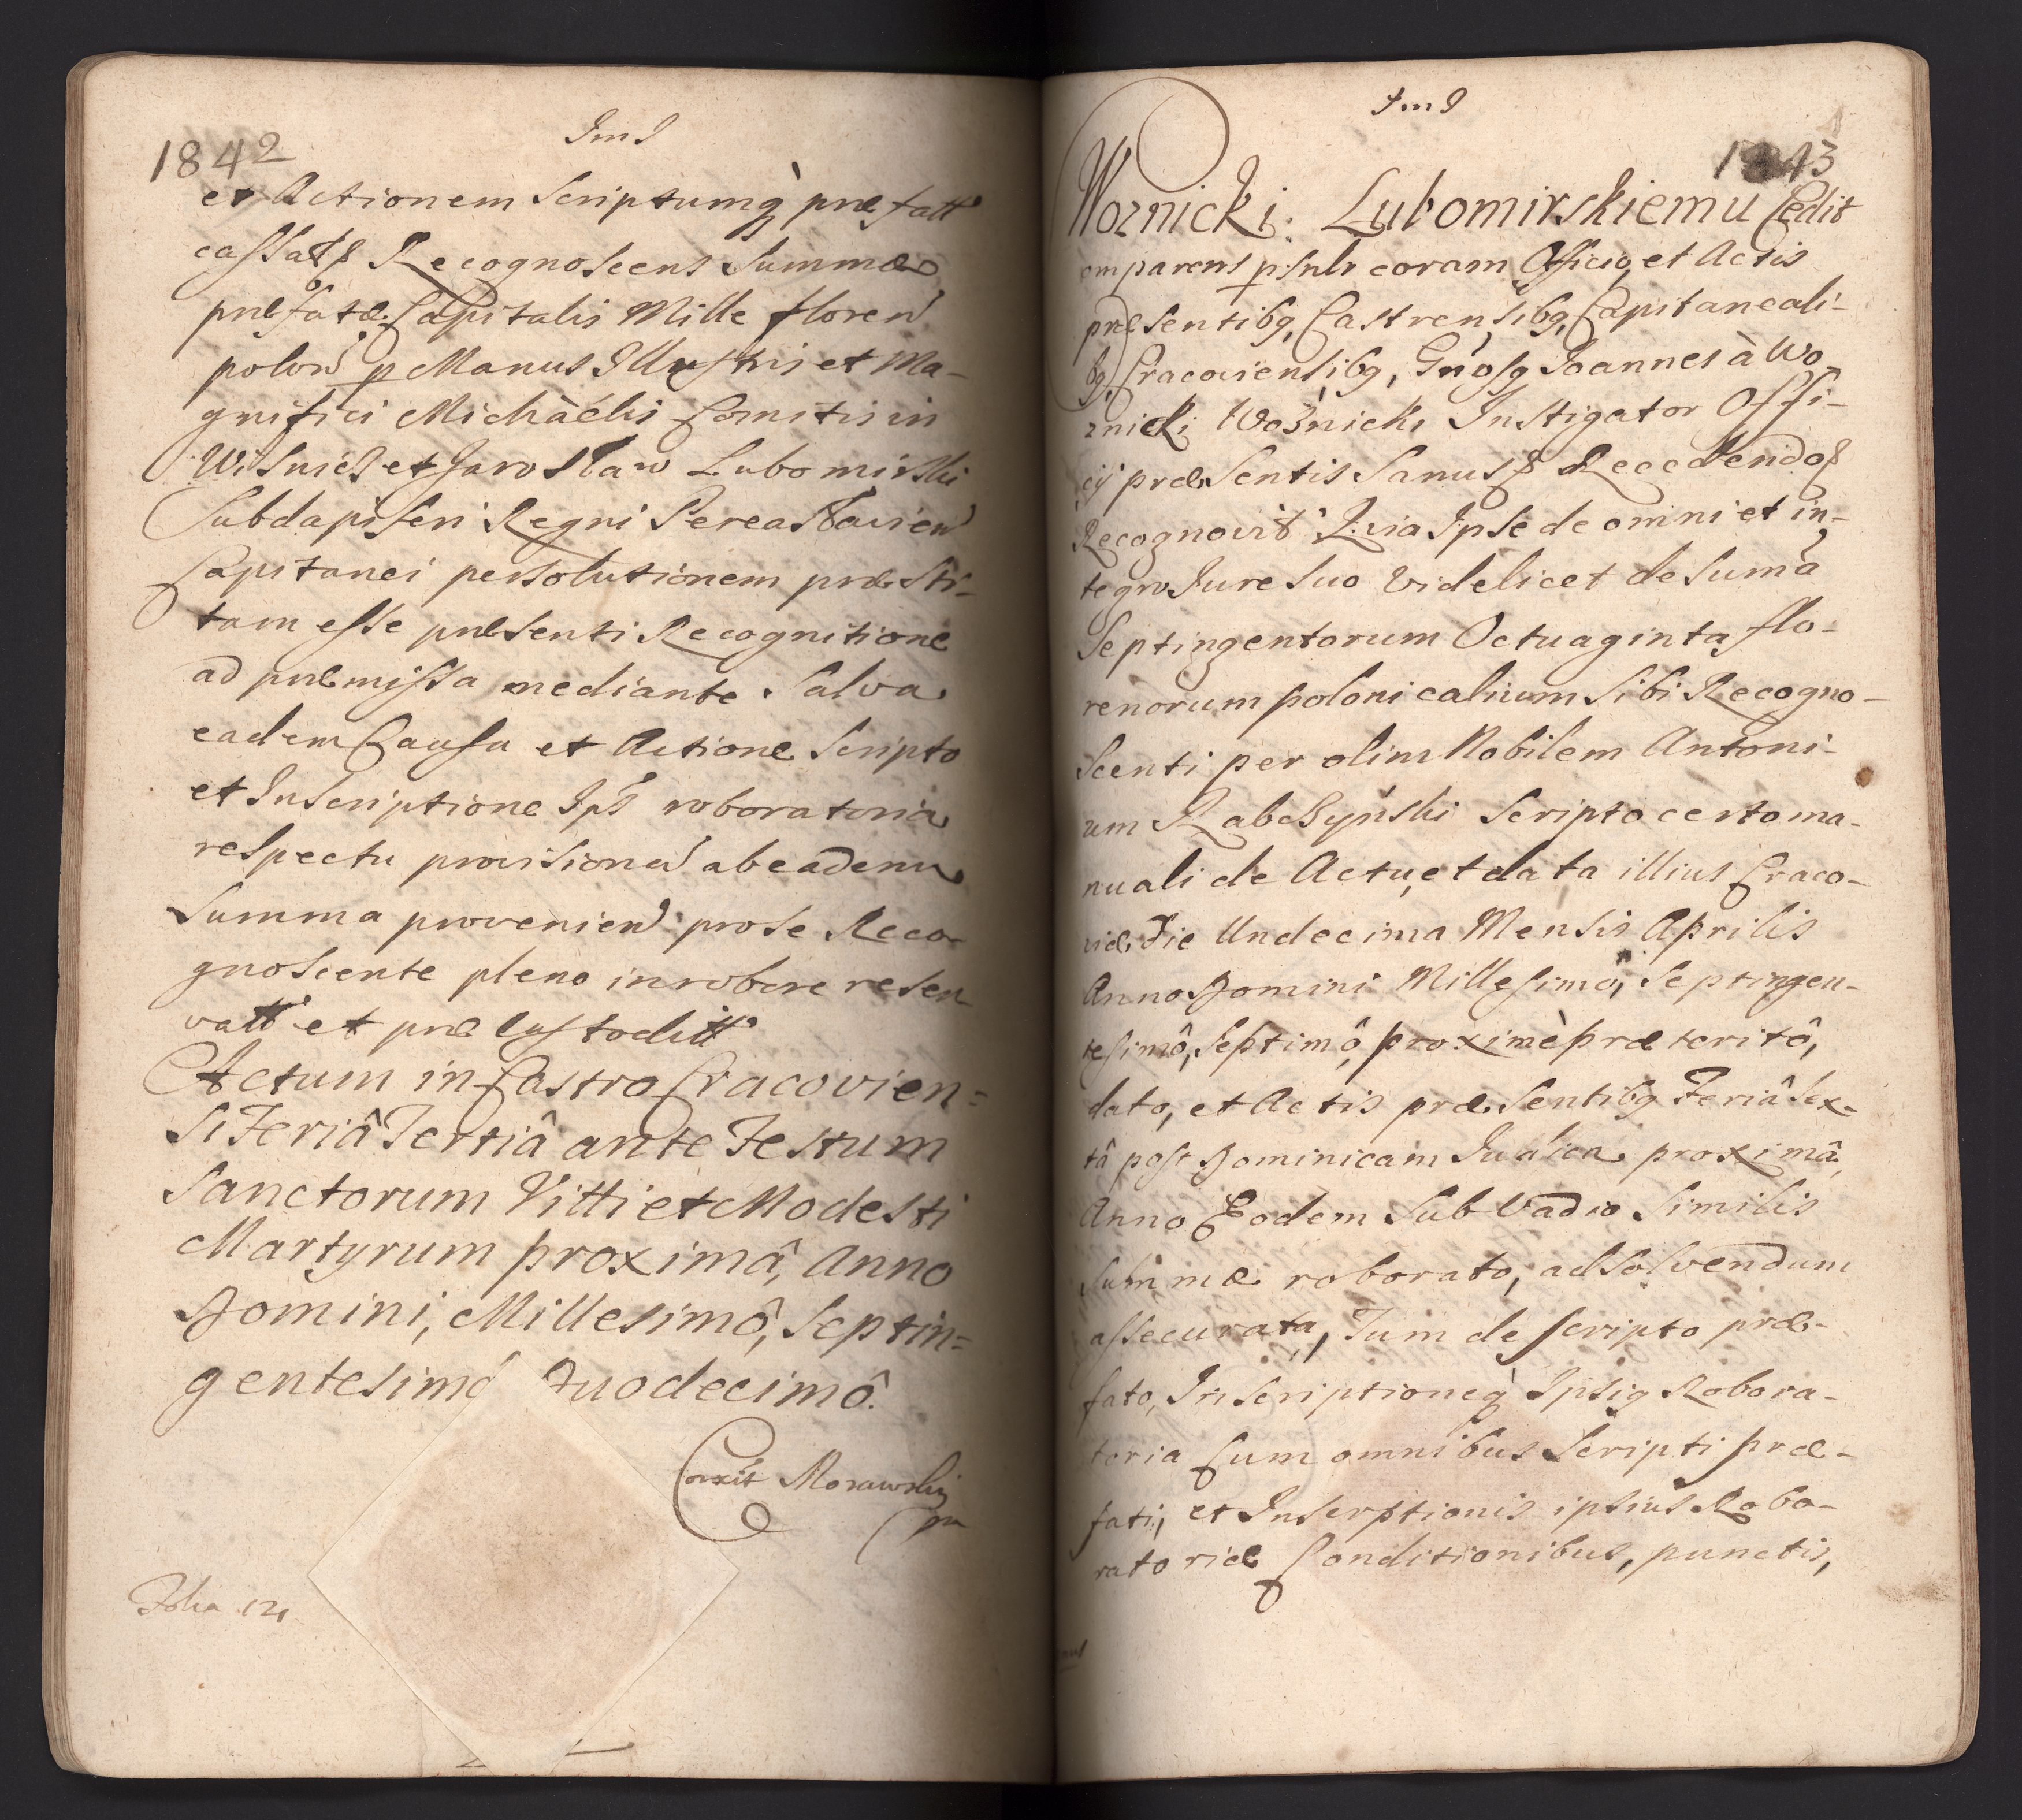 1842
ImI
et Actionem Scriptumq̀ præfatt
cassatß Recognoscens Summæ
præfatæ Capitalis Mille floren
polon p Manus Illustris et Ma-
gnifici Michàelis Comitis in
Wisnicz et Jarosław Lubomirski
Subdapiferi Regni Pereasłavien
Capitanei persolutionem præsti-
tam esse præsenti Recognitione
ad præmissa mediante Salva
eadem Causa et Actione Scripto
et Inscriptione Ips roboratoria
respectu provisionu ab eadem
Summa provenien pro se Reco-
gnoscente pleno in robore reser
vatt et præcustoditt
Actum in Castro Cracovien=
si Feriâ Tertiâ ante Festum
Sanctorum Vitti et Modesti
Martyrum proximâ, Anno
Domini, Millesimô, Septin=
gentesimô Duodecimô.
Corrxit Morawski
mp
Folia 121
ImI
1843
Woznicki: Lubomirskiemu Cedit
omparens psnlr coram Officio, et Actis
præsentibg, Castrensibg, Capitaneali-
bg Cracoviensibg, Gnosg Joannes à Wo
znicki Woźnicki Instigator Offi-
cij præsentis Sanusß Recedendoß
Recognovit Quia Ipse de omni et in-
tegro Jure Suo Videlicet de Suma
Septingentorum Octuaginta flo-
renorum polonicalium Sibi Recogno-
scenti per olim Nobilem Antoni-
um Rabsztyński Scripto certo ma-
nuali de Actu, et data illius Craco-
viæ Die Undecima Mensis Aprilis
Anno Domini Millesimô, Septingen-
tesimô, Septimô, proximè præteritô,
dato, et Actis præsentibg Feriâ Sex-
tâ post Dominicam Judica proximâ,
Anno Eodem Sub Vadio Similis
Summæ roborato, ad Solvendum
assecurata, Tum de scripto præ-
fato, Inscriptioneq̀ Ipsig Robora-
toria Cum omnibus Scripti præ-
fati, et Inscrptionis ipsius Robo-
ratoriæ Conditionibus, punctis,